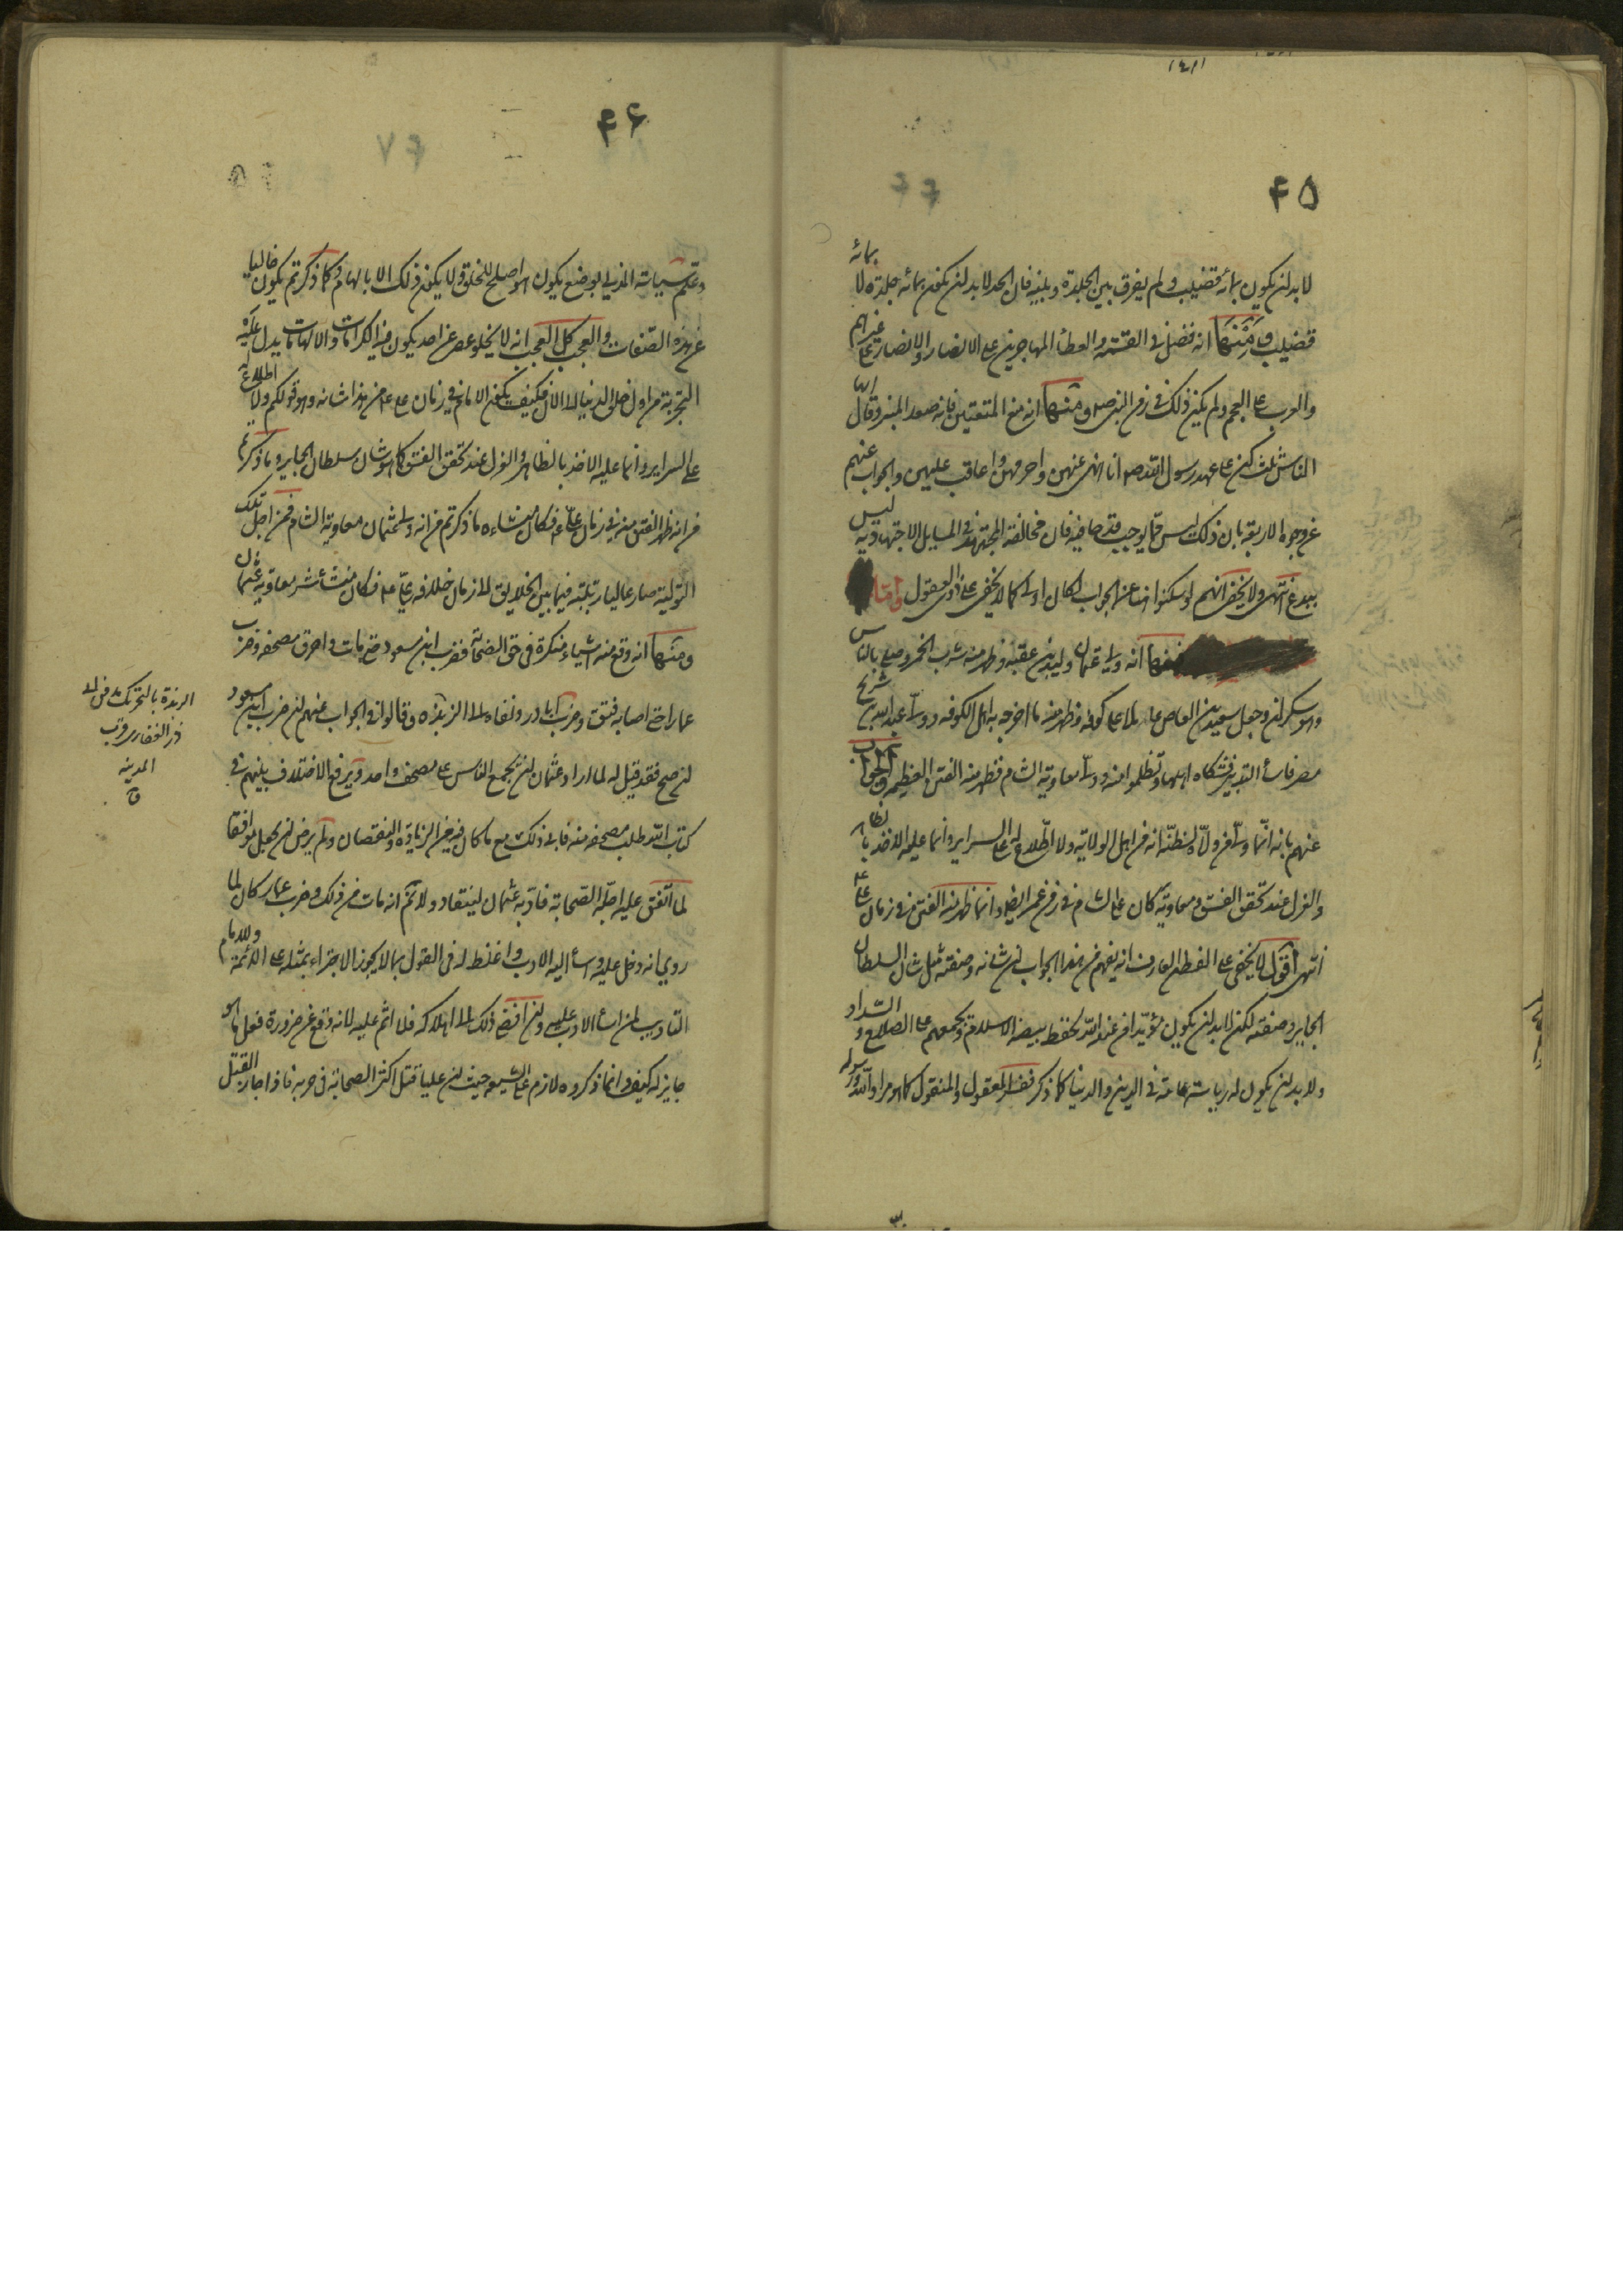 ۴۵
لا بد لن يكون بمائة قضيب ولم يفرق بين الجلدة وبينه فان الحد لا بد لن يكون بمائه جلدة لا بمائة
قضيب ومنها انه فضل في القسمة والعطاء المهاجرين على الانصار والانصار على غيرهم
والعرب على العجم ولم يكن ذلك في زمن النبي ص ومنها انه منع المتعتين فانه صعد المنبر وقال ايها
الناس ثلث كن على عهد رسول الله ص انا انهى عنهن واحرمهن واعاقب عليهن والجواب عنهم
عن وجوه الاربعة بان ذلك ليس مما يوجب قدحا فيه فان مخالفة المجتهد في المسايل الاجتهادية ليس
ببدع انتهى ولا يخفى انهم لو سكتوا عن الجواب لكان اولى كما لا يخفى على ذوي العقول واما
فمنها انه ولى عثمان وليد بن عقبة وظهر منه شرب الخمر وصلى بالناس
وهو سكران وجعل سعيد بن العاص على كوفه وظهر منه ما اخرجه به اهل الكوفه وولى عبد الله بن سرح
مصر فاساء التدبير فشكاه اهلها وتظلموا منه وولى معاوية الشام فظهر منه الفتن العظيمة والجواب
عنهم بانه انما ولى من ولاه لظنه انه من اهل الولاية ولا اطلاع له على السراير وانما عليه الاخذ بالظاهر
والعزل عند تحقق الفسق ومعاوية كان على الشام في زمن عمر ايضا وانما ظهر منه الفتن في زمان على ع
انتهى اقول لا يخفى على الفطن العارف انه يفهم من هذا الجواب لن شانه وصفته مثل شان السلطان
الجاير وصفته لكن لا بد لن يكون مؤيدا من عند الله لحفظ بيضة الاسلام ويجمعهم على الصلاح والسداد
ولا بد لن يكون له رياسة عامة في الدين والدنيا كما ذكر في المعقول والمنقول كما هو مراد الله ورسوله
۴۶
وعلم سياسة المدني بوضع يكون هو اصلح للخلق ولا يكون ذلك الا بالهام وكما ذكرتم يكون خاليا
عن هذه الصفات والعجب كل العجب انه لا يخلو عصر عن احد يكون فيه الكرامات والالهامات كما يدل عليه
التجربة من اول خلق الدنيا الى الان فكيف يكون الامام في زمان على ع من هذا شانه وهو قولكم ولا اطلاع له
على السراير وانما عليه الاخذ بالظاهر والعزل عند تحقق الفسق كما هو شان سلطان الجاير وما ذكرتم
من انه ظهر الفتن منه في زمان على ع فكان منشاءه ما ذكرتم من انه ولى عثمان معاوية الشام فمن اجل تلك
التولية صار عاليا رتبته فيما بين الخلايق الى زمان خلافة على ع فكان منشأ شر معاوية عثمان
ومنها انه وقع منه اشياء منكرة في حق الصحابة فضرب ابن مسعود حتى مات واحرق مصحفه وضرب
عمارا حتى اصابه فتق وضرب ابا ذر ونفاه الى الربذه وقالوا في الجواب عنهم لن ضرب ابن مسعود
لن صح فقد قيل له لما اراد عثمان لن يجمع الناس على مصحف واحد ويرفع الاختلاف بينهم في
كتاب الله طلب مصحفه منه فابى ذلك مع ما كان فيه من الزيادة والنقصان ولم يرض لن يجعل موافقا
لما اتفق عليه اجلة الصحابة فادبه عثمان لينقاد ولا نم انه مات من ذلك وضرب عمار كان لما
روي انه دخل عليه واساء اليه الادب واغلظ له في القول بما لا يجوز الاجتراء بمثله على الائمة وللامام
التاديب لمن اساء الادب عليه ولن افضى ذلك الى اهلاكه فلا اثم عليه لانه وقع عن ضرورة فعل ما هو
جايز له كيف وانما ذكروه لازم على الشيعة حيث لن عليا قتل اكثر الصحابة في حربه فاذا جاز القتل
الربذة بالتحريك
ذر الغفاري قرب
المدينه